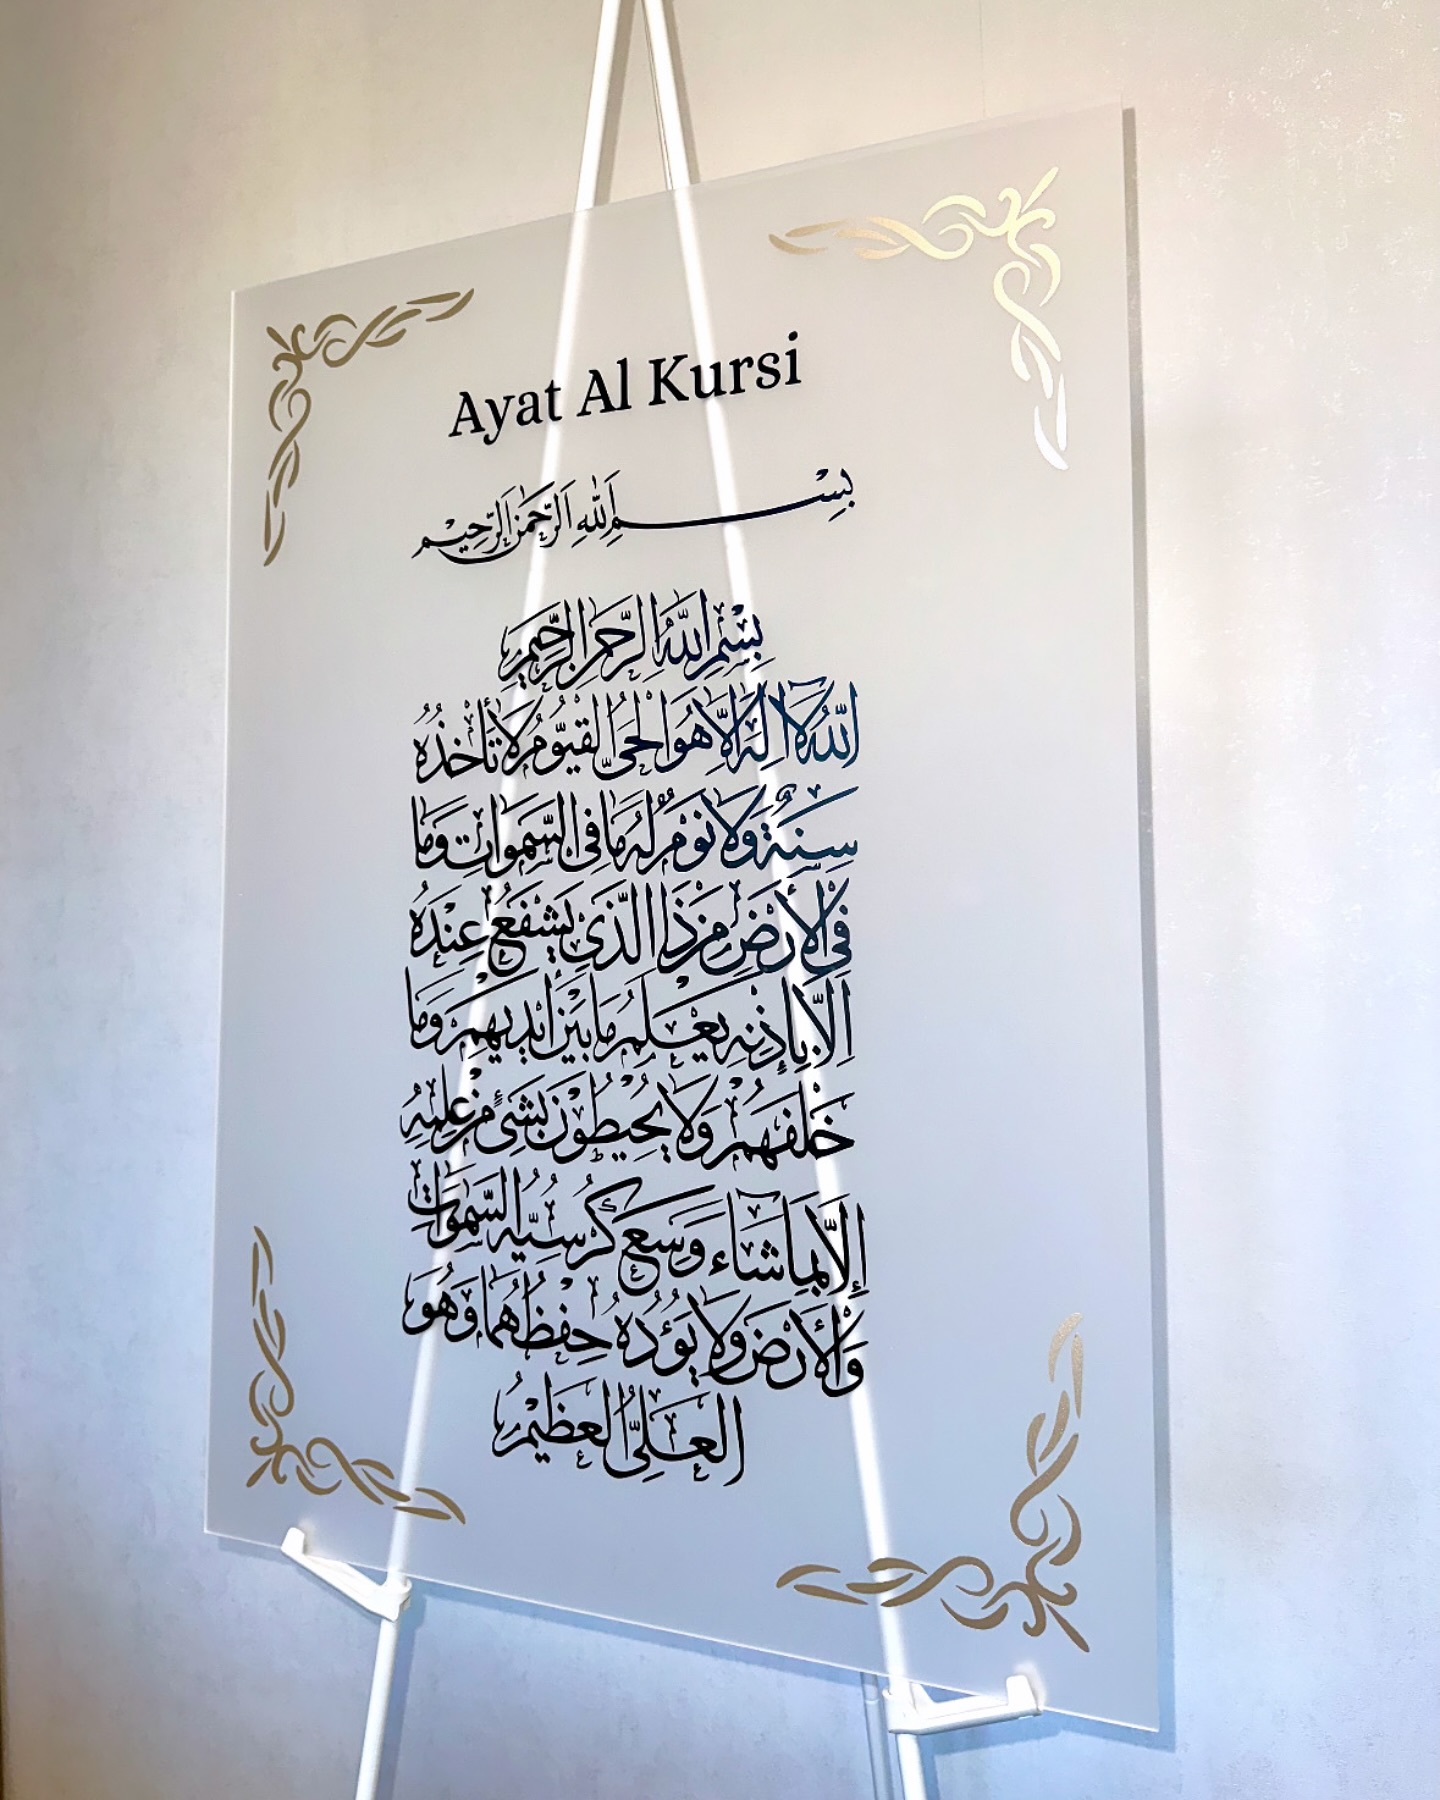 Ayat Al Kursi
بِسْمِ اللهِ الرَّحْمٰنِ الرَّحِيْمِ
بِسْمِ اللّٰهِ الرَّحْمٰنِ الرَّحِيمِ
اَللّٰهُ لَا اِلٰهَ اِلَّا هُوَ الْحَىُّ الْقَيُّومُ لَا تَأْخُذُهُ
سِنَةٌ وَلَا نَوْمٌ لَهُ مَا فِى السَّمٰوَاتِ وَمَا
فِى الْأَرْضِ مَنْ ذَا الَّذِى يَشْفَعُ عِنْدَهُ
اِلَّا بِإِذْنِهِ يَعْلَمُ مَا بَيْنَ أَيْدِيهِمْ وَمَا
خَلْفَهُمْ وَلَا يُحِيْطُوْنَ بِشَىْءٍ مِنْ عِلْمِهِ
إِلَّا بِمَا شَاءَ وَسِعَ كُرْسِيُّهُ السَّمٰوَاتِ
وَالْأَرْضَ وَلَا يَؤُدُهُ حِفْظُهُمَا وَهُوَ
الْعَلِىُّ الْعَظِيْمُ